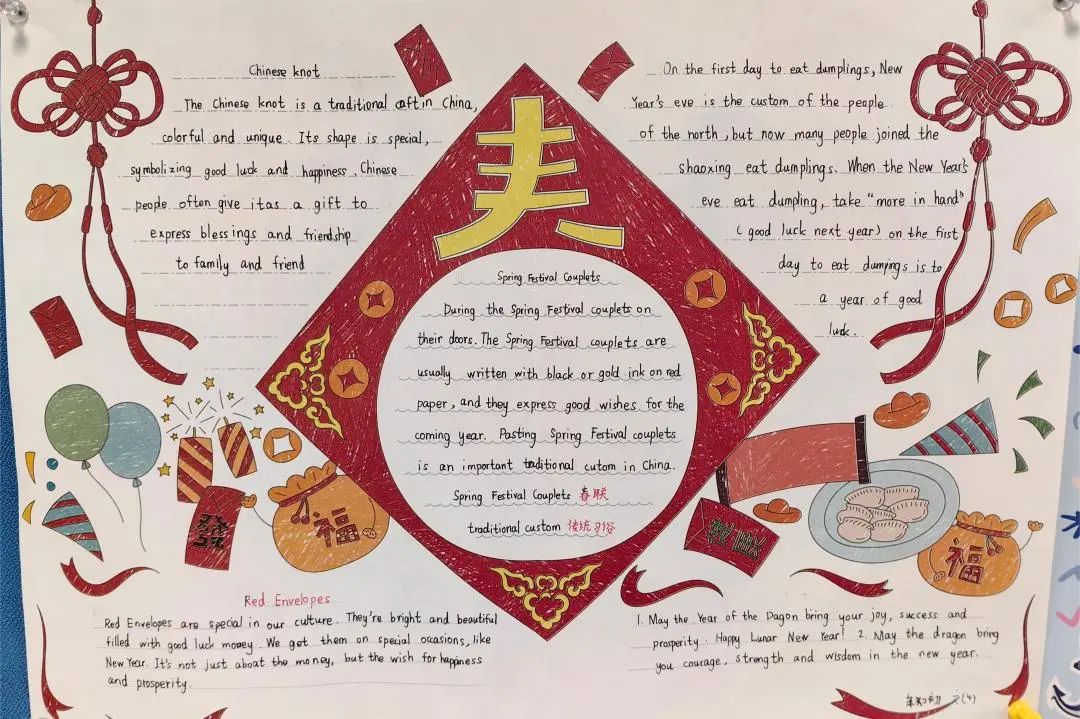 Chinese knot
The Chinese knot is a traditional caft in China,
colorful and unique. Its shape is special,
symbolizing good luck and happiness. Chinese
people often give itas a gift to
express blessings and friendship
to family and friend
On the first day to eat dumplings, New
Year's eve is the custom of the people
of the north, but now many people joined the
shaoxing eat dumplings. When the New Year's
eve eat dumpling, take "more in hand"
(good luck next year) on the first
day to eat dumpings is to
a year of good
luck.
Spring Festival Couplets
During the Spring Festival couplets on
their doors. The Spring Festival couplets are
usually written with black or gold ink on red
paper, and they express good wishes for the
coming year. Pasting Spring Festival couplets
is an important taditional cutom in China.
Spring Festival Couplets 春联
traditional custom 传统习俗
發
福
福
Red Envelopes
Red Envelopes are special in our culture. They're bright and beautiful
filled with good luck money. We get them on special occasions, like
New Year. It's not just aboat the money, but the wish for happiness
and prosperity
1. May the Year of the Dagon bring your joy, success and
prosperity. Happy Lunar New Year! 2. May the dragon bring
you courage, strength and wisdom in the new year.
(4)